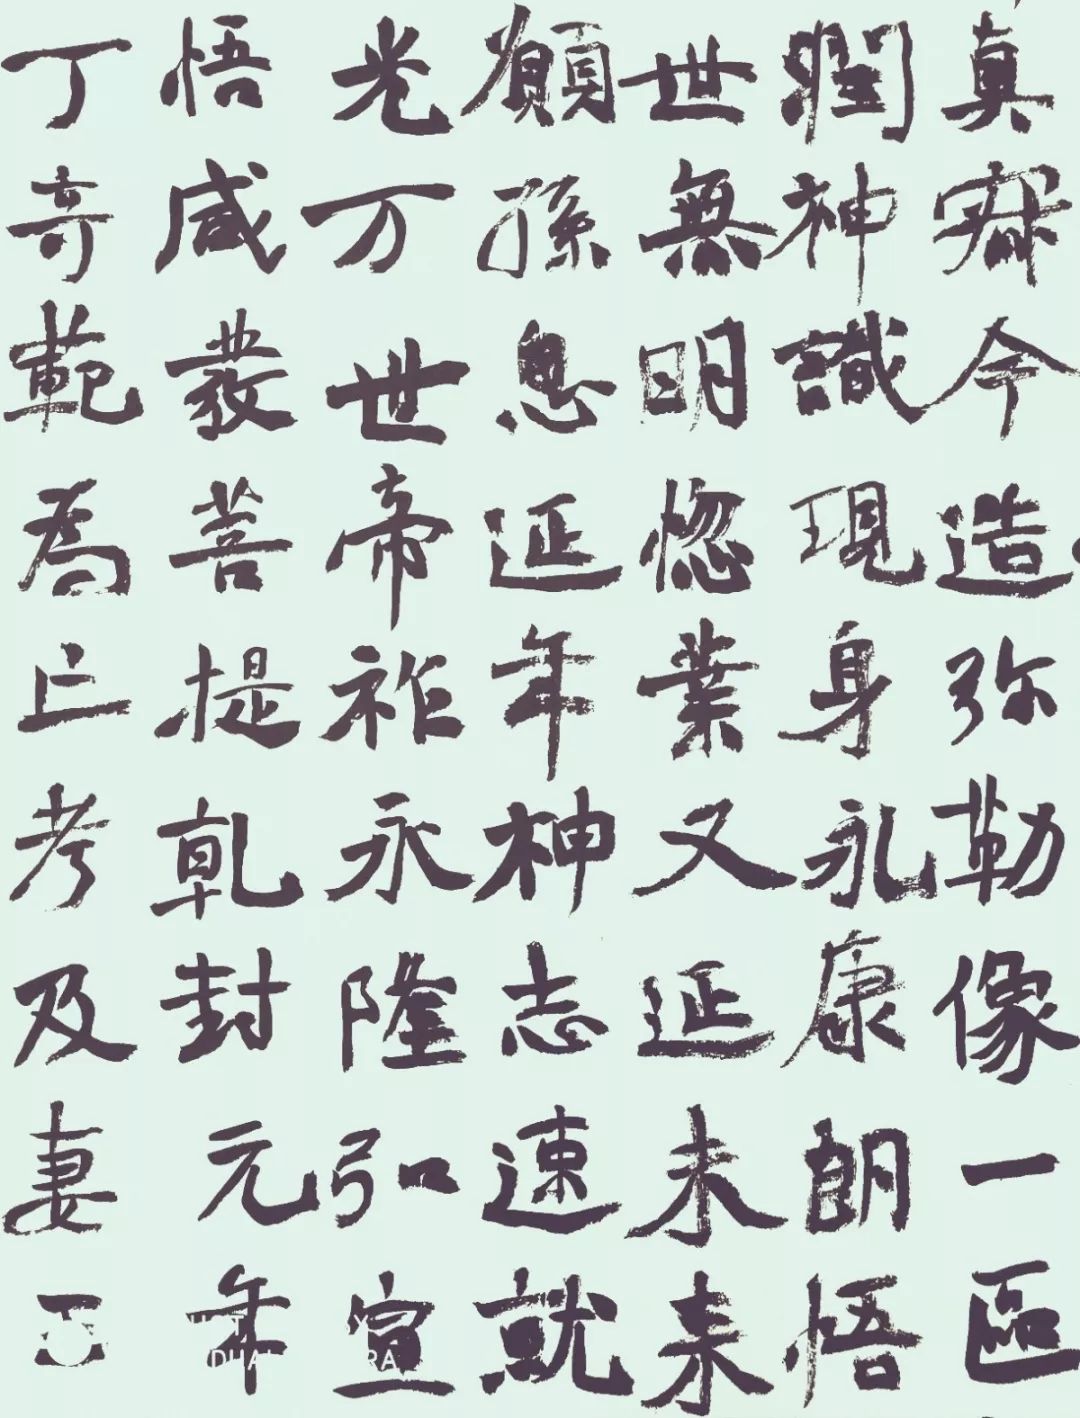 真寂今造弥勒像一區
潤神識現身永康朗悟
世無明惚業又延未来
願孫息延年神志速就
光万世帝祚永隆弘宣
悟咸發菩提乾封元年
丁奇範為亡考及妻